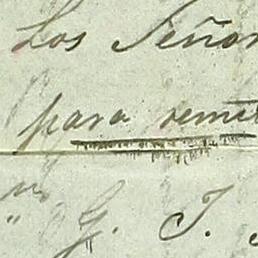 Los Señor
para remit
" G. J.